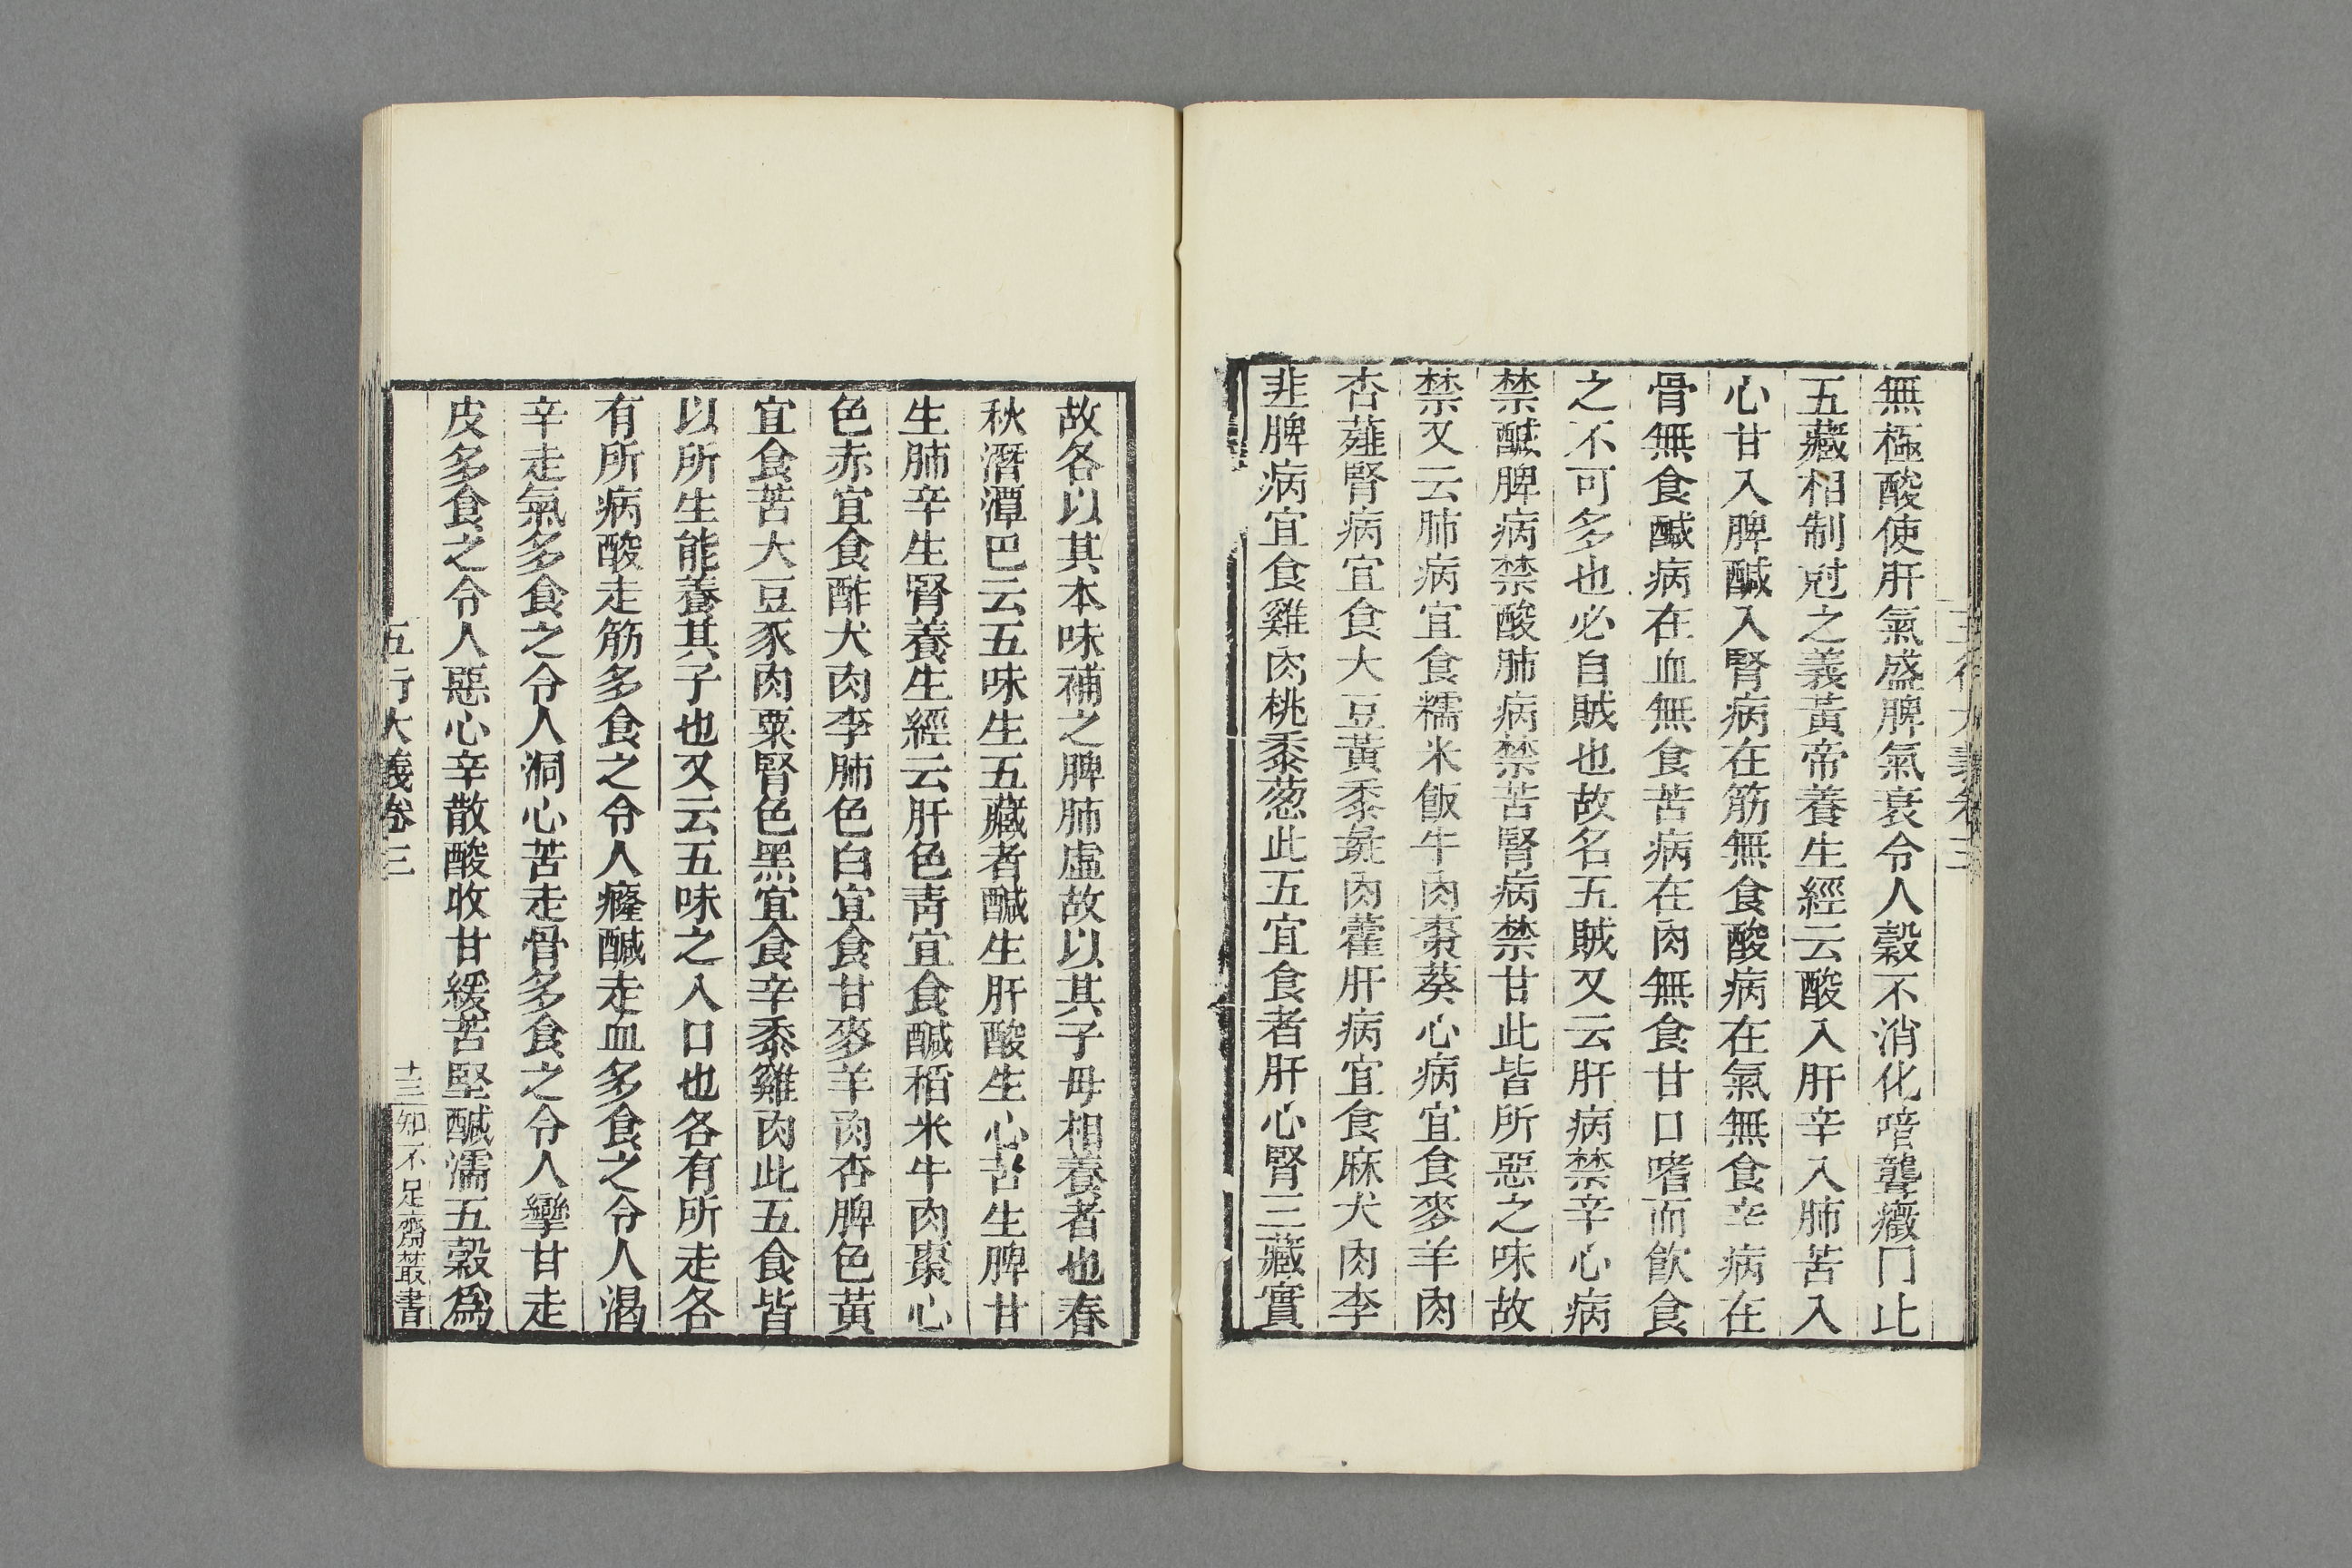 無極酸使肝氣盛脾氣衰令人穀不消化喑聾癥冂止
五藏相制尅之義黃帝養生經云酸入肝辛入肺苦入
心甘入脾醎入腎病在筋無食酸病在氣無食辛病在
骨無食醎病在血無食苦病在肉無食甘口嗜而飲食
之不可多也必自賊也故名五賊又云肝病禁辛心病
禁醎脾病禁酸肺病禁苦腎病禁甘此皆所惡之味故
禁又云肺病宜食糯米飯牛肉棗葵心病宜食麥羊肉
杏薤腎病宜食大豆黃黍彘肉藿肝病宜食麻犬肉李
韭脾病宜食雞肉桃黍葱此五宜食者肝心腎三藏實
故各以其本味補之脾肺虛故以其子母相養者也春
秋潛潭巴云五味生五藏者醎生肝酸生心苦生脾甘
生肺辛生腎養生經云肝色靑宜食醎稻米牛肉棗心
色赤宜食酢犬肉李肺色白宜食甘麥羊肉杏脾色黃
宜食苦大豆豕肉粟腎色黑宜食辛黍雞肉此五食皆
以所生能養其子也又云五味之入口也各有所走各
有所病酸走筋多食之令人癃醎走血多食之令人渴
辛走氣多食之令人洞心苦走骨多食之令人攣甘走
皮多食之令人惡心辛散酸收甘緩苦堅醎濡五穀爲
五行大義卷三 十三 知不足齋叢書